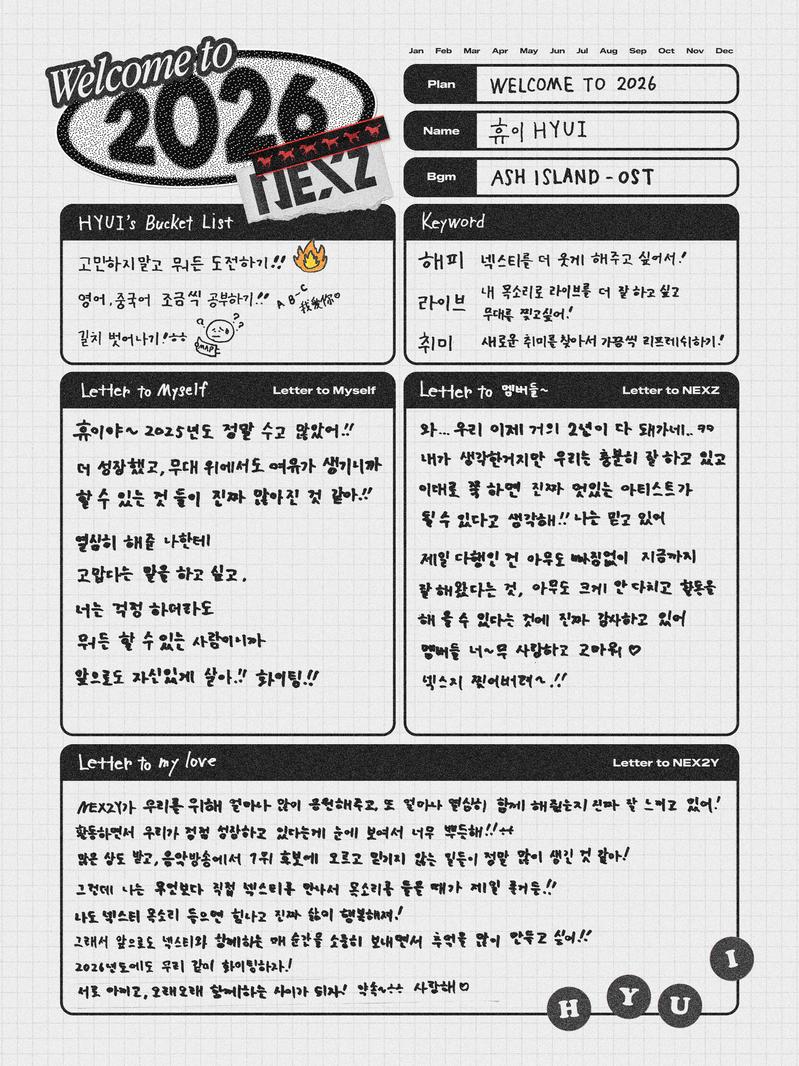 Welcome to
2026
NEXZ
Jan Feb Mar Apr May Jun Jul Aug Sep Oct Nov Dec
Plan WELCOME TO 2026
Name 휴이 HYUI
Bgm ASH ISLAND - OST
HYUI's Bucket List
고민하지말고 뭐든 도전하기!!
영어, 중국어 조금씩 공부하기!! A B-C 我爱你
길치 벗어나기!ㅎㅎ MAP
Keyword
해피 넥스티를 더 웃게 해주고 싶어서!
라이브 내 목소리로 라이브를 더 잘 하고 싶고
무대를 찢고싶어!
취미 새로운 취미를 찾아서 가끔씩 리프레쉬하기!
Letter to Myself Letter to Myself
휴이야~ 2025년도 정말 수고 많았어!!
더 성장했고, 무대 위에서도 여유가 생기니까
할 수 있는 것 들이 진짜 많아진 것 같아!!
열심히 해준 나한테
고맙다는 말을 하고 싶고,
너는 걱정 하더라도
뭐든 할 수 있는 사람이니까
앞으로도 자신있게 살아!! 화이팅!!
Letter to 멤버들~ Letter to NEXZ
와... 우리 이제 거의 2년이 다 돼가네.. ㅋㅋ
내가 생각한거지만 우리는 충분히 잘 하고 있고
이대로 쭉 하면 진짜 멋있는 아티스트가
될 수 있다고 생각해!! 나는 믿고 있어
제일 다행인 건 아무도 빠짐없이 지금까지
잘 해왔다는 것, 아무도 크게 안 다치고 활동을
해 올 수 있다는 것에 진짜 감사하고 있어
멤버들 너~무 사랑하고 고마워 ♡
넥스지 찢어버려~!!
Letter to my love Letter to NEX2Y
NEX2Y가 우리를 위해 얼마나 많이 응원해주고, 또 얼마나 열심히 함께 해줬는지 진짜 잘 느끼고 있어!
활동하면서 우리가 점점 성장하고 있다는게 눈에 보여서 너무 뿌듯해!!ㅎㅎ
많은 상도 받고, 음악방송에서 1위 후보에 오르고 믿기지 않는 일들이 정말 많이 생긴 것 같아!
그런데 나는 무엇보다 직접 넥스티를 만나서 목소리를 들을 때가 제일 즐거움!!
나도 넥스티 목소리 들으면 힘나고 진짜 삶이 행복해져!
그래서 앞으로도 넥스티와 함께하는 매 순간을 소중히 보내면서 추억을 많이 만들고 싶어!!
2026년도에도 우리 같이 화이팅하자!
서로 아끼고, 오래오래 함께하는 사이가 되자! 약속~ㅎㅎ 사랑해♡
H Y U I